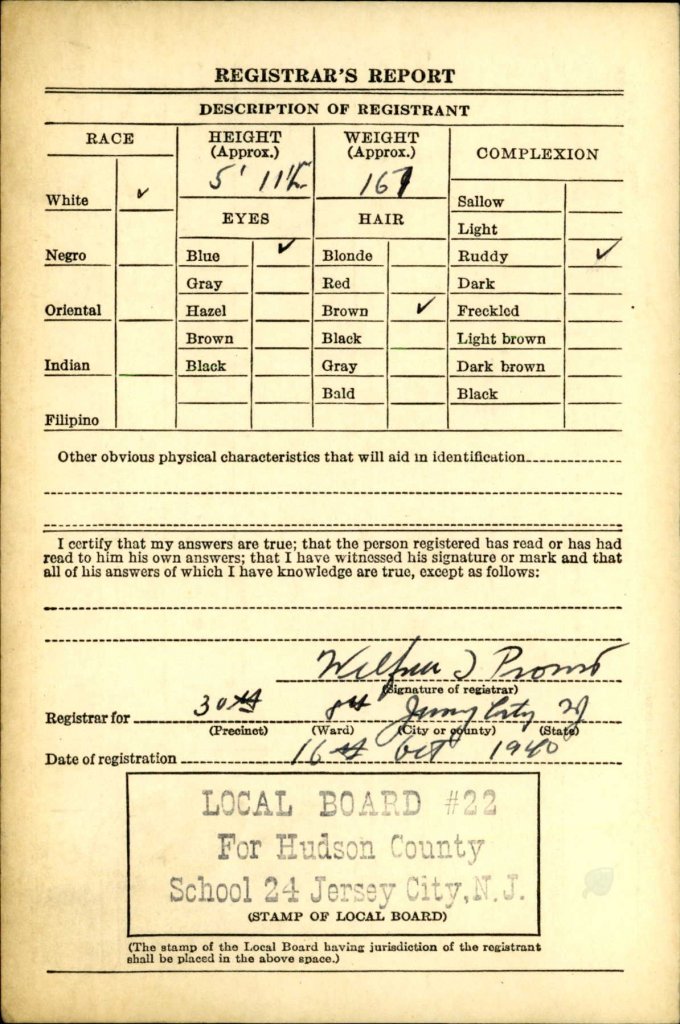 REGISTRAR'S REPORT
DESCRIPTION OF REGISTRANT
RACE
HEIGHT
(Approx.)
WEIGHT
(Approx.)
COMPLEXION
5' 11½
167
White ✓
EYES
HAIR
Sallow
Light
Negro
Blue ✓
Blonde
Ruddy ✓
Gray
Red
Dark
Oriental
Hazel
Brown ✓
Freckled
Brown
Black
Light brown
Indian
Black
Gray
Dark brown
Bald
Black
Filipino
Other obvious physical characteristics that will aid in identification
I certify that my answers are true; that the person registered has read or has had
read to him his own answers; that I have witnessed his signature or mark and that
all of his answers of which I have knowledge are true, except as follows:
(Signature of registrar)
Registrar for 30th 8th Jersey City NJ
(Precinct) (Ward) (City or county) (State)
Date of registration 16th Oct 1940
LOCAL BOARD #22
For Hudson County
School 24 Jersey City, N.J.
(STAMP OF LOCAL BOARD)
(The stamp of the Local Board having jurisdiction of the registrant
shall be placed in the above space.)